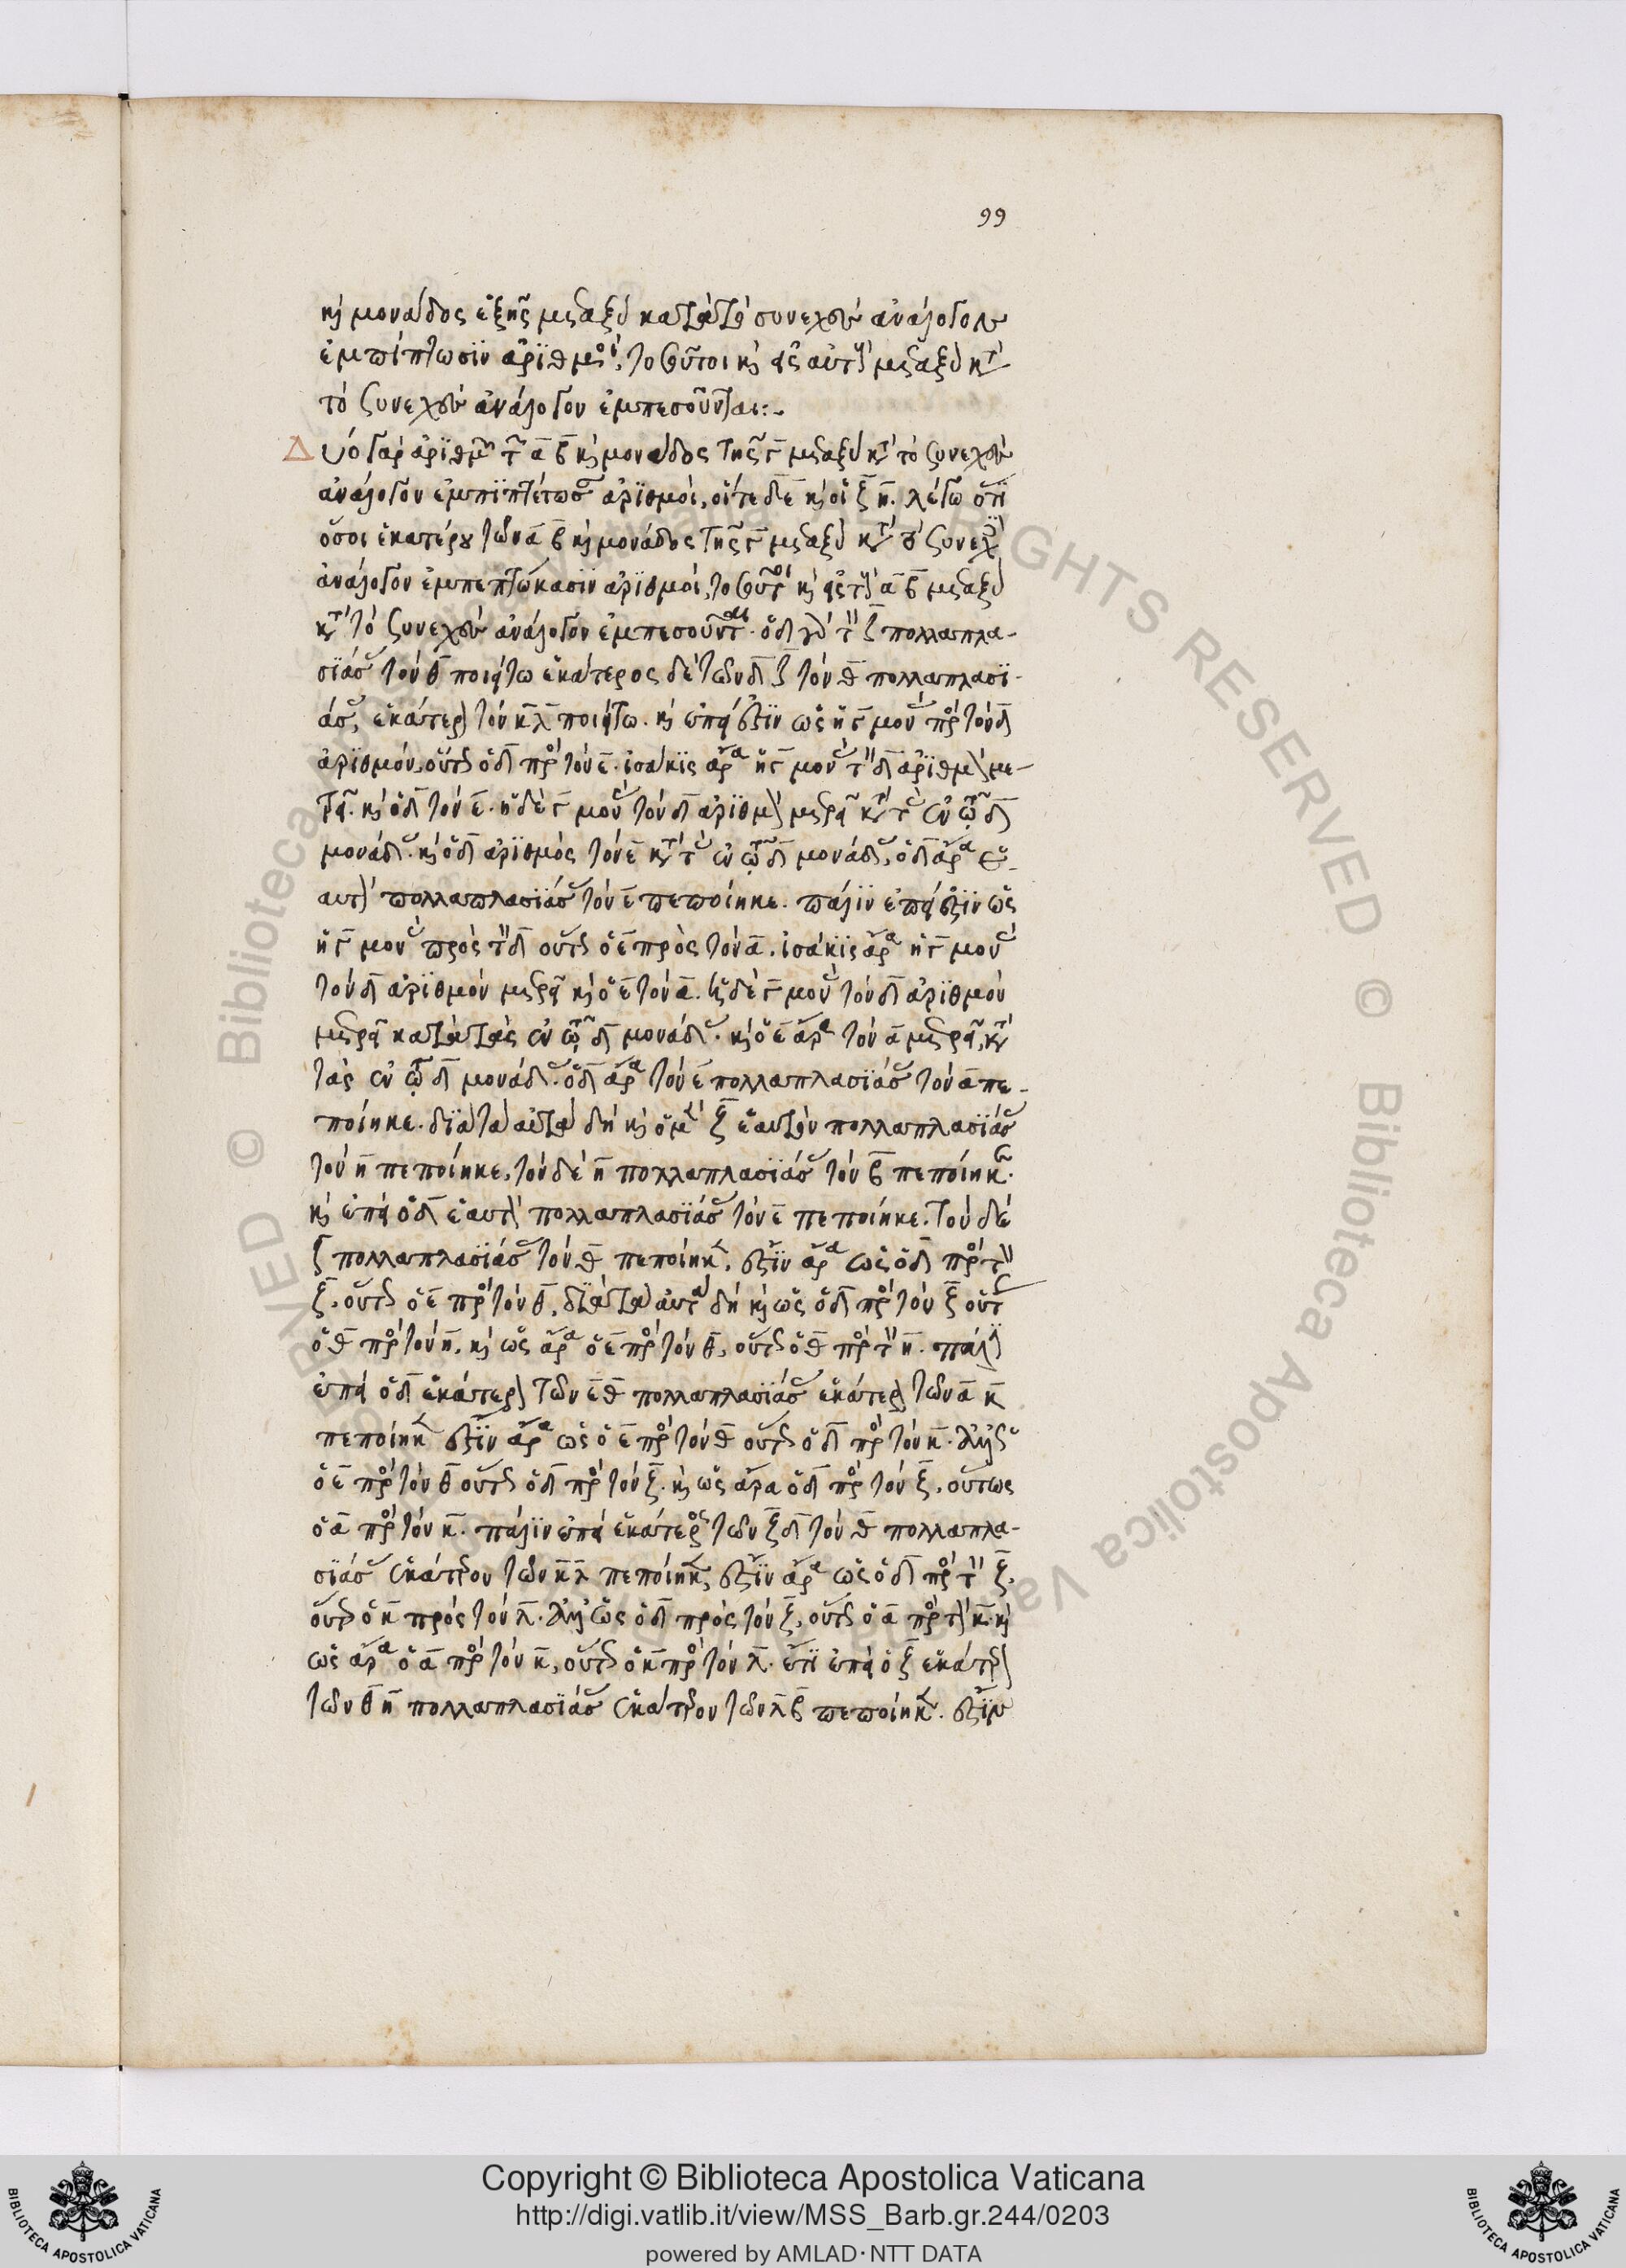 99
καὶ μονάδος ἑξῆς μεταξὺ κατὰ τὸ συνεχὲς ἀνάλογον
ἐμπίπτωσϊν ἀρϊθμοί, τοσοῦτοι καὶ εἰς αὐτοὺς μεταξὺ κατὰ
τὸ συνεχὲς ἀνάλογον ἐμπεσοῦνται:~
Δύο γὰρ ἀρϊθμῶν τῶν α β καὶ μονάδος τῆς γ μεταξὺ κατὰ τὸ συνεχὲς
ἀνάλογον ἐμπϊπτέτωσαν ἀρϊθμοί, οἵ τε δ ε καὶ οἱ ζ η. λέγω ὅτϊ
ὅσοι ἑκατέρου τῶν α β καὶ μονάδος τῆς γ μεταξὺ κατὰ τὸ συνεχὲς
ἀνάλογον ἐμπεπτώκασϊν ἀρϊθμοί, τοσοῦτοι καὶ εἰς τοὺς α β μεταξὺ
κατὰ τὸ συνεχὲς ἀνάλογον ἐμπεσοῦνται. ὁ δ γὰρ τὸν ζ πολλαπλα-
σϊάσας τὸν θ ποιείτω ἑκάτερος δὲ τῶν δ ζ τὸν θ πολλαπλασϊ-
άσας, ἑκάτερον τὸν κ λ ποιείτω. καὶ ἐπεί ἐστϊν ὡς ἡ γ μονὰς πρὸς τὸν δ
ἀρϊθμόν, οὕτως ὁ δ πρὸς τὸν ε. ἰσάκϊς ἄρα ἡ γ μονὰς τὸν δ ἀρϊθμὸν με-
τρεῖ. καὶ ὁ δ τὸν ε. ἡ δὲ γ μονὰς τὸν δ ἀρϊθμὸν μετρεῖ κατὰ τὰς ἐν τῷ δ
μονάδας. καὶ ὁ δ ἀρϊθμὸς τὸν ε κατὰ τὰς ἐν τῷ δ μονάδας, ὁ δ ἄρα ἑ-
αυτὸν πολλαπλασϊάσας τὸν ε πεποίηκε. πάλϊν ἐπεί ἐστϊν ὡς
ἡ γ μονὰς πρὸς τὸν δ οὕτως ὁ ε πρὸς τὸν α. ἰσάκϊς ἄρα ἡ γ μονὰς
τὸν δ ἀρϊθμὸν μετρεῖ καὶ ὁ ε τὸν α. ἡ δὲ γ μονὰς τὸν δ ἀρϊθμὸν
μετρεῖ κατὰ τὰς ἐν τῷ δ μονάδας. καὶ ὁ ε ἄρα τὸν α μετρεῖ, κατὰ
τὰς ἐν τῷ δ μονάδας. ὁ δ ἄρα τὸν ε πολλαπλασϊάσας τὸν α πε-
ποίηκε. δϊὰ τὰ αὐτὰ δὴ καὶ ὁ μὲν ζ ἑαυτὸν πολλαπλασϊάσας
τὸν η πεποίηκε, τὸν δὲ η πολλαπλασϊάσας τὸν β πεποίηκεν.
καὶ ἐπεὶ ὁ δ ἑαυτὸν πολλαπλασϊάσας τὸν ε πεποίηκε. τὸν δὲ
ζ πολλαπλασϊάσας τὸν θ πεποίηκεν. ἔστϊν ἄρα ὡς ὁ δ πρὸς τὸν
ζ, οὕτως ὁ ε πρὸς τὸν θ, δϊὰ τὰ αὐτὰ δὴ καὶ ὡς ὁ δ πρὸς τὸν ζ οὕτως
ὁ θ πρὸς τὸν η. καὶ ὡς ἄρα ὁ ε πρὸς τὸν θ, οὕτως ὁ θ πρὸς τὸν η. πάλϊν
ἐπεὶ ὁ δ ἑκάτερον τῶν ε θ πολλαπλασϊάσας ἑκάτερον τῶν α κ
πεποίηκεν ἔστϊν ἄρα ὡς ὁ ε πρὸς τὸν θ οὕτως ὁ α πρὸς τὸν κ. ἀλλ' ὡς
ὁ ε πρὸς τὸν θ οὕτως ὁ δ πρὸς τὸν ζ. καὶ ὡς ἄρα ὁ δ πρὸς τὸν ζ, οὕτως
ὁ α πρὸς τὸν κ. πάλϊν ἐπεὶ ἑκάτερος τῶν ζ δ τὸν θ πολλαπλα-
σϊάσας ἑκάτερον τῶν κ λ πεποίηκεν, ἔστϊν ἄρα ὡς ὁ δ πρὸς τὸν ζ,
οὕτως ὁ κ πρὸς τὸν λ. ἀλλ' ὡς ὁ δ πρὸς τὸν ζ, οὕτως ὁ α πρὸς τὸν κ. καὶ
ὡς ἄρα ὁ α πρὸς τὸν κ, οὕτως ὁ κ πρὸς τὸν λ. ἔτϊ ἐπεὶ ὁ ζ ἑκάτερον
τῶν θ η πολλαπλασϊάσας ἑκάτερον τῶν λ β πεποίηκεν. ἔστϊν
Copyright © Biblioteca Apostolica Vaticana
http://digi.vatlib.it/view/MSS_Barb.gr.244/0203
powered by AMLAD·NTT DATA